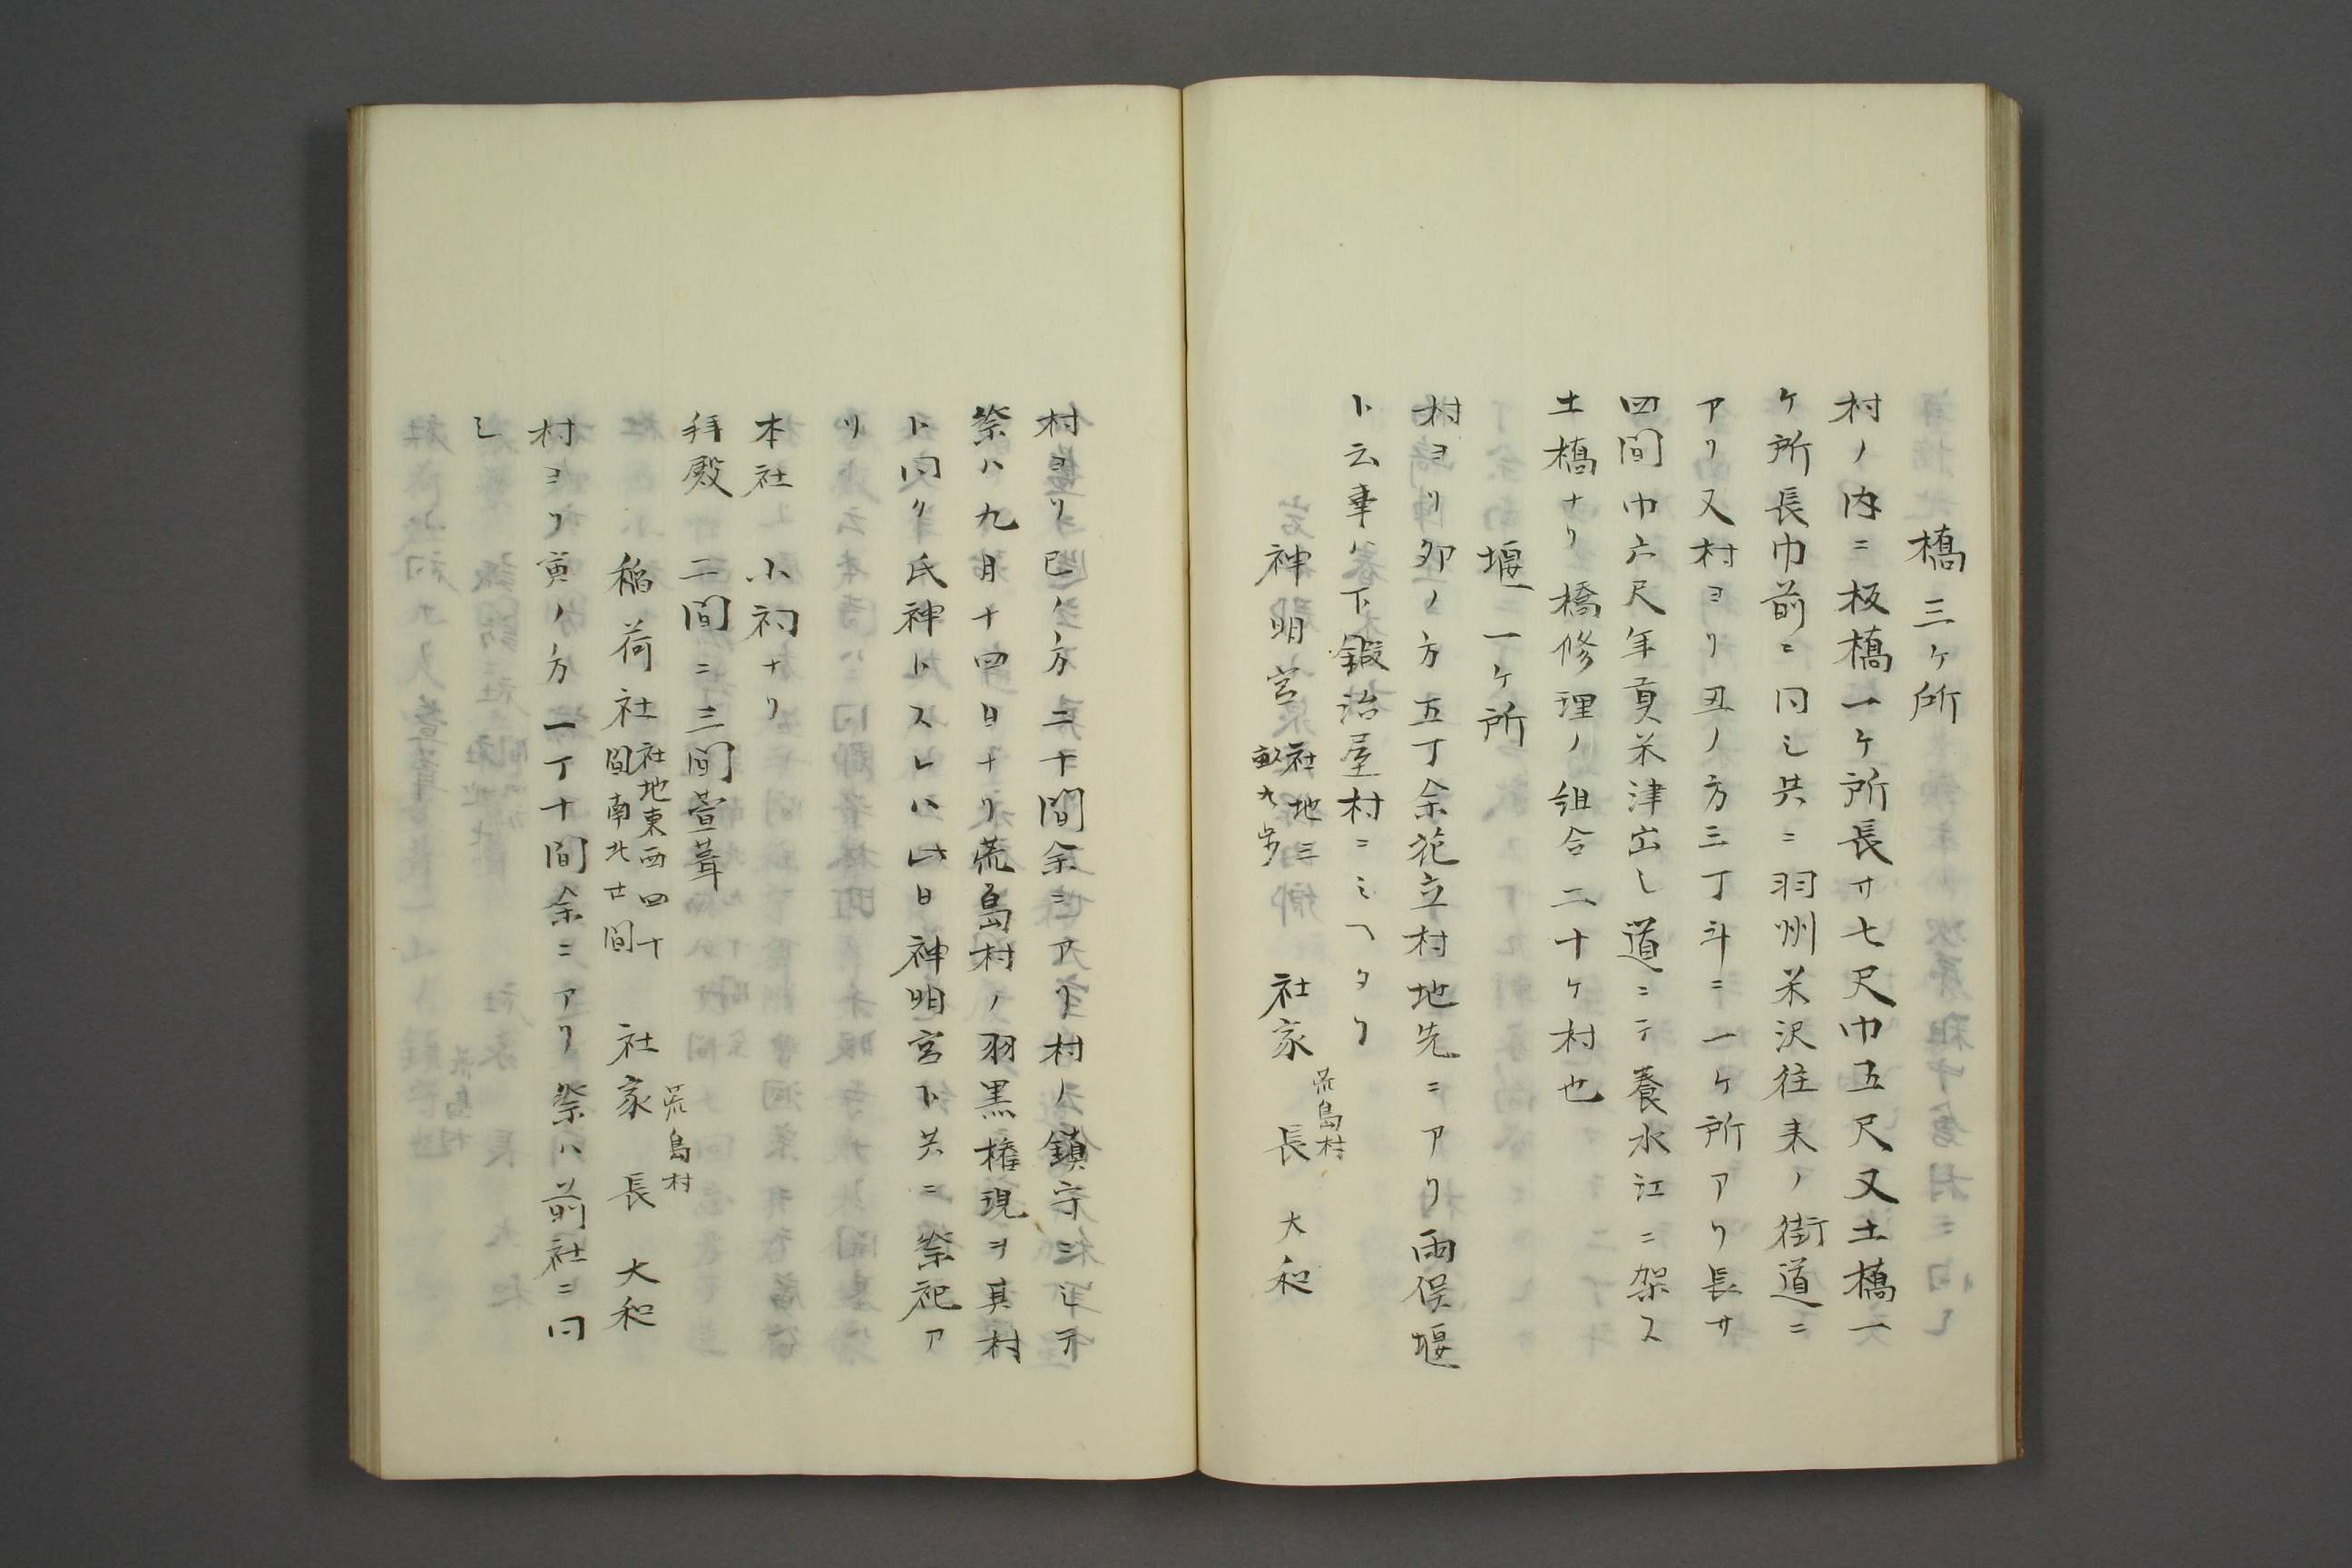 橋三ケ所
村ノ内ニ板橋一ケ所長サ七尺巾五尺又土橋一
ケ所長巾前ニ同シ共ニ羽州米沢往来ノ街道ニ
アリ又村ヨリ丑ノ方三丁斗ニ一ケ所アリ長サ
四間巾六尺年貢米津出し道ニテ養水江ニ架ス
土橋ナリ橋修理ノ組合二十ケ村也
堰一ケ所
村ヨリ卯ノ方五丁余花立村地先ニアリ雨俣堰
ト云事ハ下鍛治屋村ニミヘタリ
神明宮 社地三
畝九歩 社家 荒島村
長 大和
村ヨリ巳ノ方二十間余ニアリ村ノ鎮守ニシテ
祭ハ九月十四日ナリ荒島村ノ羽黒権現ヲ其村
ト同ク氏神トスレハ此日神明宮ト共ニ祭祀ア
リ
本社 小祠ナリ
拜殿 二間ニ三間萱葺
稲荷社 社地東西四十
間南北廿間 社家 荒島村
長 大和
村ヨリ寅ノ方一丁十間余ニアリ祭ハ前社ニ同
シ